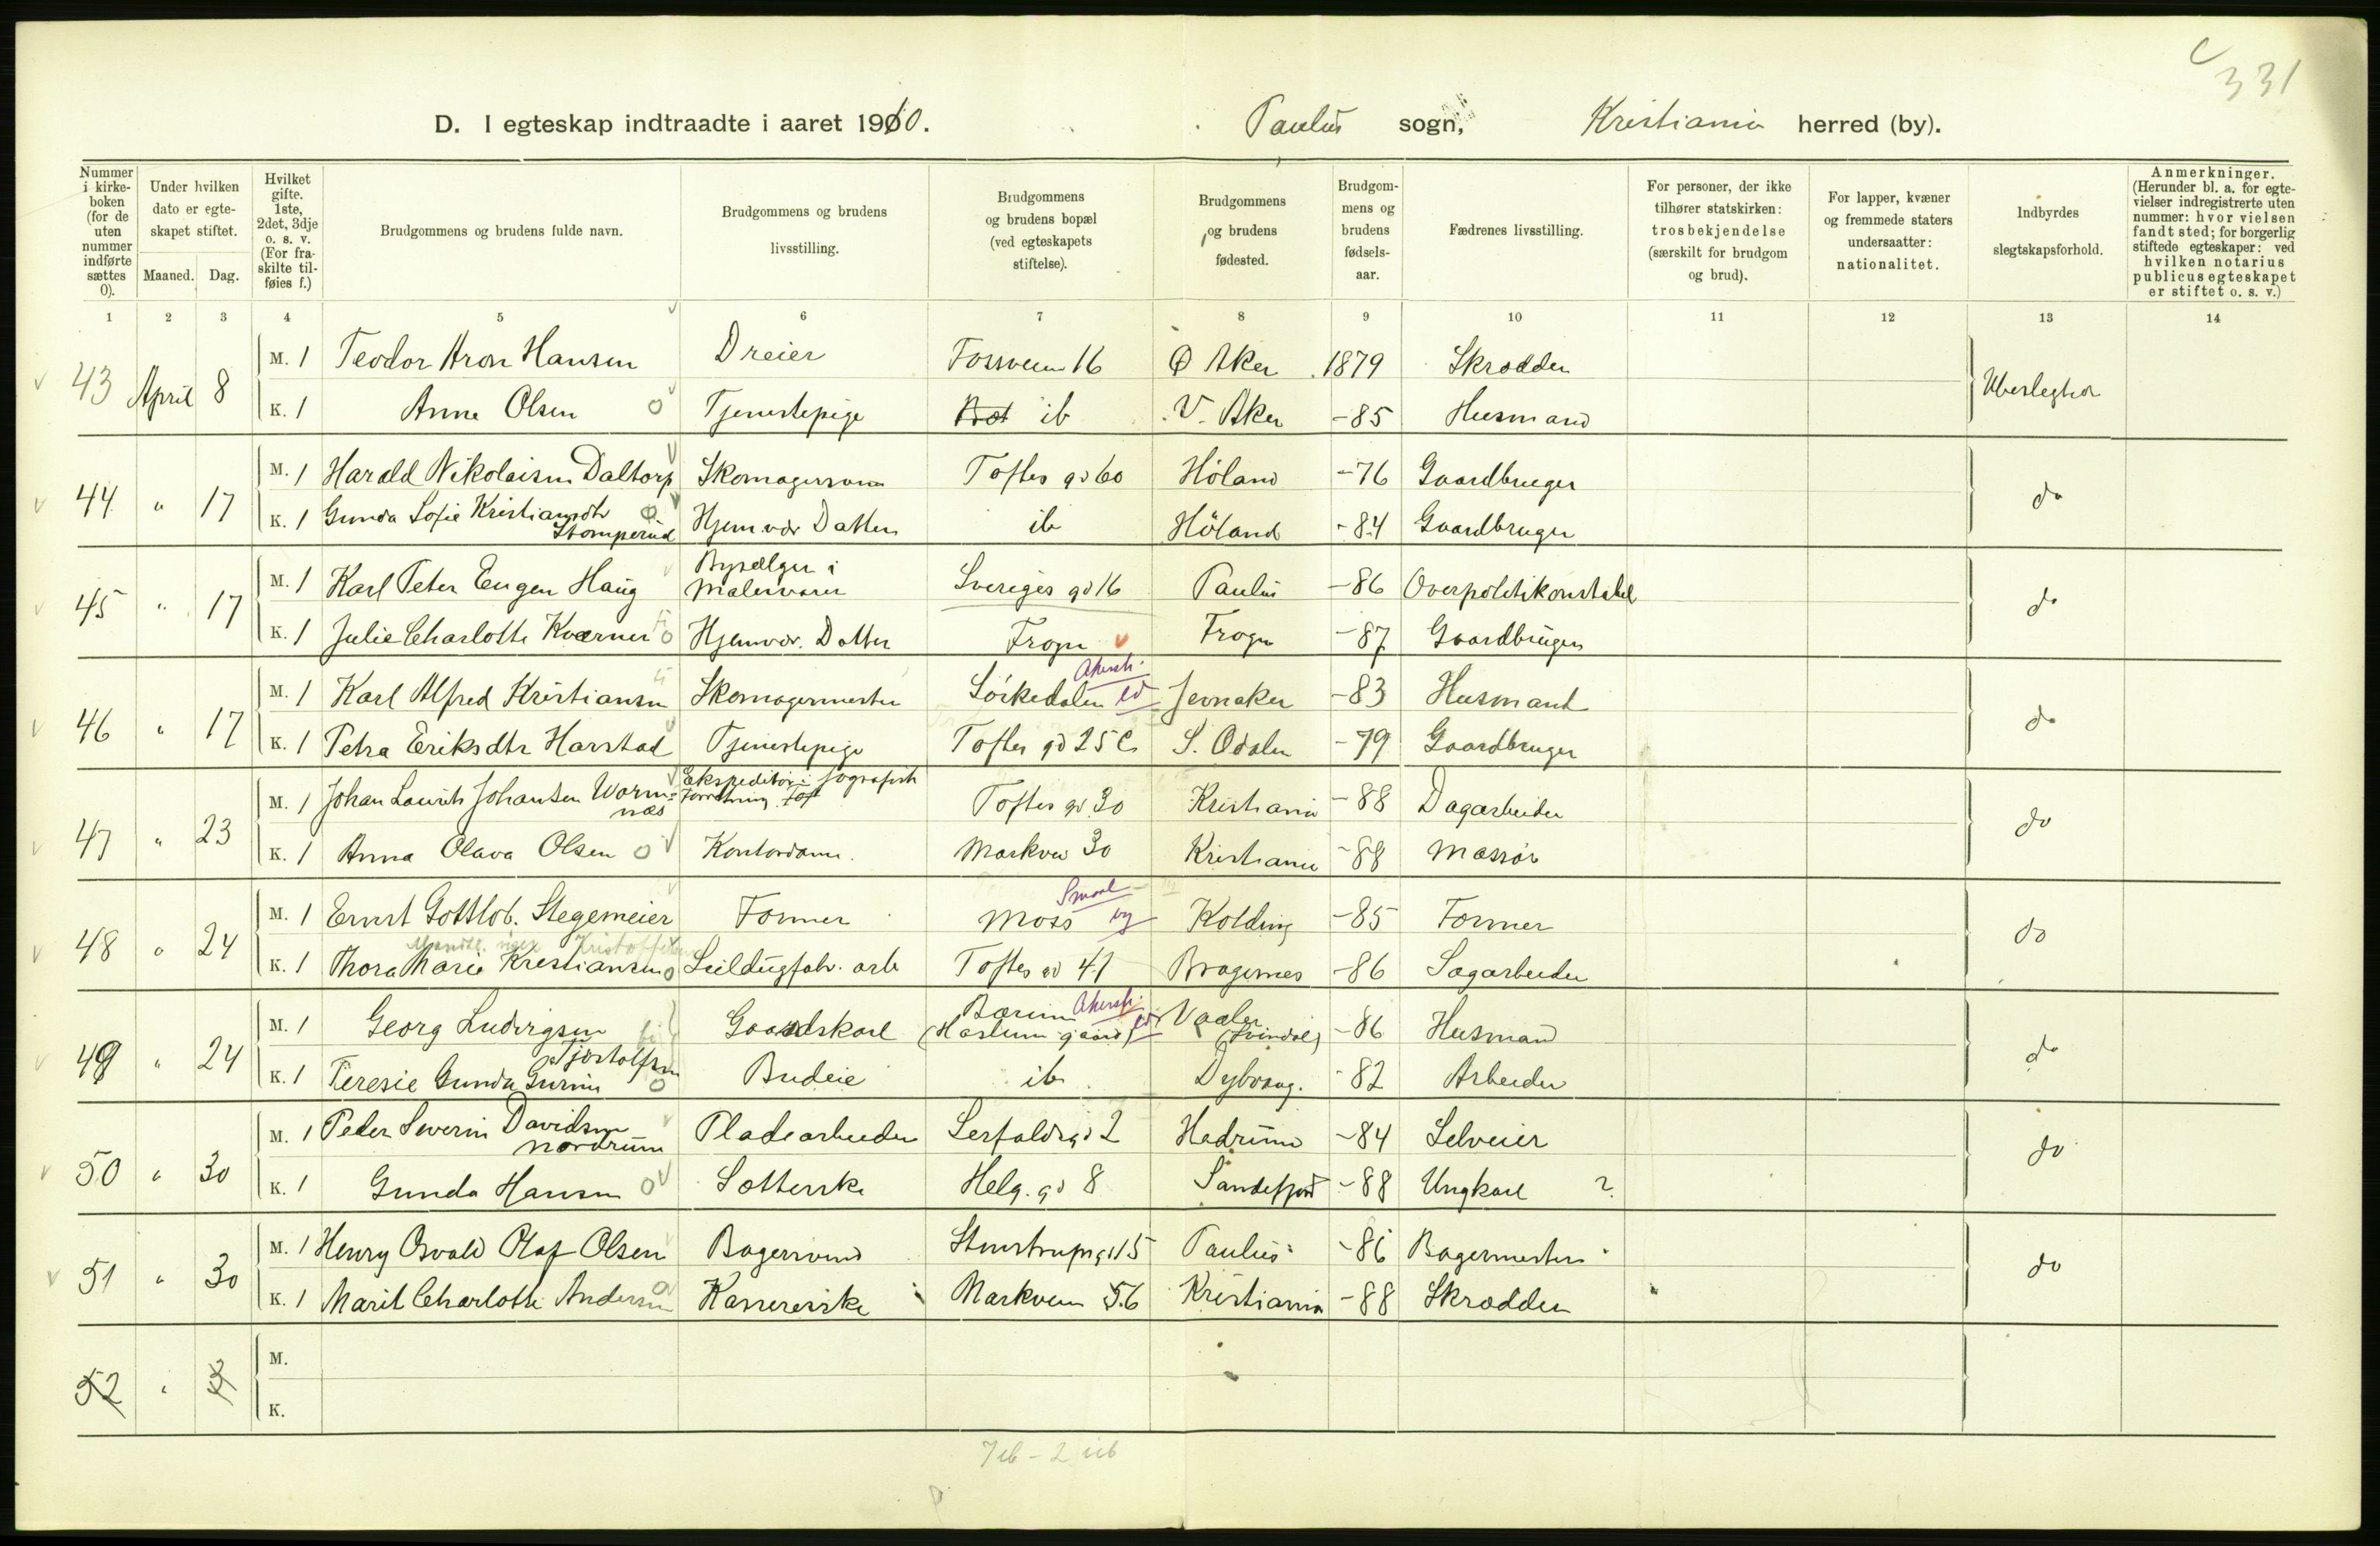 C
331
D. I egteskap indtraadte i aaret 1910. Paulus sogn, Kristiania herred (by).
Nummer i kirke-boken (for de uten nummer indførte sættes 0).
Under hvilken dato er egte-skapet stiftet.
Maaned. Dag.
Hvilket gifte. 1ste, 2det, 3dje o. s. v. (For fra-skilte til-føies f.)
Brudgommens og brudens fulde navn.
Brudgommens og brudens livsstilling.
Brudgommens og brudens bopæl (ved egteskapets stiftelse).
Brudgommens og brudens fødested.
Brudgom-mens og brudens fødsels-aar.
Fædrenes livsstilling.
For personer, der ikke tilhører statskirken: trosbekjendelse (særskilt for brudgom og brud).
For lapper, kvæner og fremmede staters undersaatter: nationalitet.
Indbyrdes slegtskapsforhold.
Anmerkninger. (Herunder bl. a. for egte-vielser indregistrerte uten nummer: hvor vielsen fandt sted; for borgerlig stiftede egteskaper: ved hvilken notarius publicus egteskapet er stiftet o. s. v.)
1 2 3 4 5 6 7 8 9 10 11 12 13 14
43 April 8 M. 1 Teodor Aron Hansen Dreier Fossveien 16 Ø Aker 1879 Skrædder Ubeslegtet
K. 1 Anne Olsen Tjenestepige ib V. Aker -85 Husmand
44 " 17 M. 1 Harald Nikolaisen Daltorp Skomagersvend Toftes gd 60 Höland -76 Gaardbruger do
K. 1 Gunda Sofie Kristiansdtr Stomperud Hjemvær Datter ib Höland -84 Gaardbruger
45 " 17 M. 1 Karl Peter Eugen Haug Bysælger i Malervarer Sveriges gd 16 Paulus -86 Overpolitikonstabel do
K. 1 Julie Charlotte Kværner Hjemvær. Datter Frogn Frogn -87 Gaardbruger
46 " 17 M. 1 Karl Alfred Kristiansen Skomagermester Sörkedalen Akersh. ld Jevnaker -83 Husmand do
K. 1 Petra Eriksdtr Harstad Tjenestepige Toftes gd 25 C S. Odalen -79 Gaardbruger
47 " 23 M. 1 Johan Laurits Johansen Wormnæs Ekspeditör i fografisk Forretning Toftes gd 30 Kristiania -88 Dagarbeider do
K. 1 Anna Olava Olsen Kontordame. Markvei 30 Kristiania -88 Massör
48 " 24 M. 1 Ernst Gottlob. Stegemeier Former Moss Smaal by Kolding -85 Former do
K. 1 Thora Marie Kristiansen Seildugfabr. arb Toftes gd 41 Bragernes -86 Sagarbeider
49 " 24 M. 1 Georg Ludvigsen Gaardskarl Bærum Akersh. ld (Haslum gaard) Vaaler (Svindal) -86 Husmand do
K. 1 Teresie Gunda Gurine Tjöstolfsen Budeie ib Dybvaag. -82 Arbeider
50 " 30 M. 1 Peder Severin Davidsen Nordrum Pladearbeider Seilduksgd 2 Hedrum -84 Selveier do
K. 1 Gunda Hansen Sötterske Helg. gd 8 Sandefjord -88 Ungkarl ?
51 " 30 M. 1 Henry Osvald Olaf Olsen Bagersvend Steenstrups gd 15 Paulus -86 Bagermester do
K. 1 Marit Charlotte Andersen Kassererske Markveien 56 Kristiania -88 Skrædder
52 " 3 M.
K.
7 ib - 2 uib